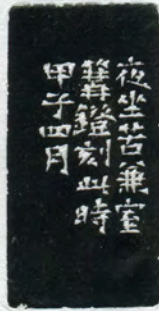 夜坐苦兼室
篝鐙刻此時
甲子四月